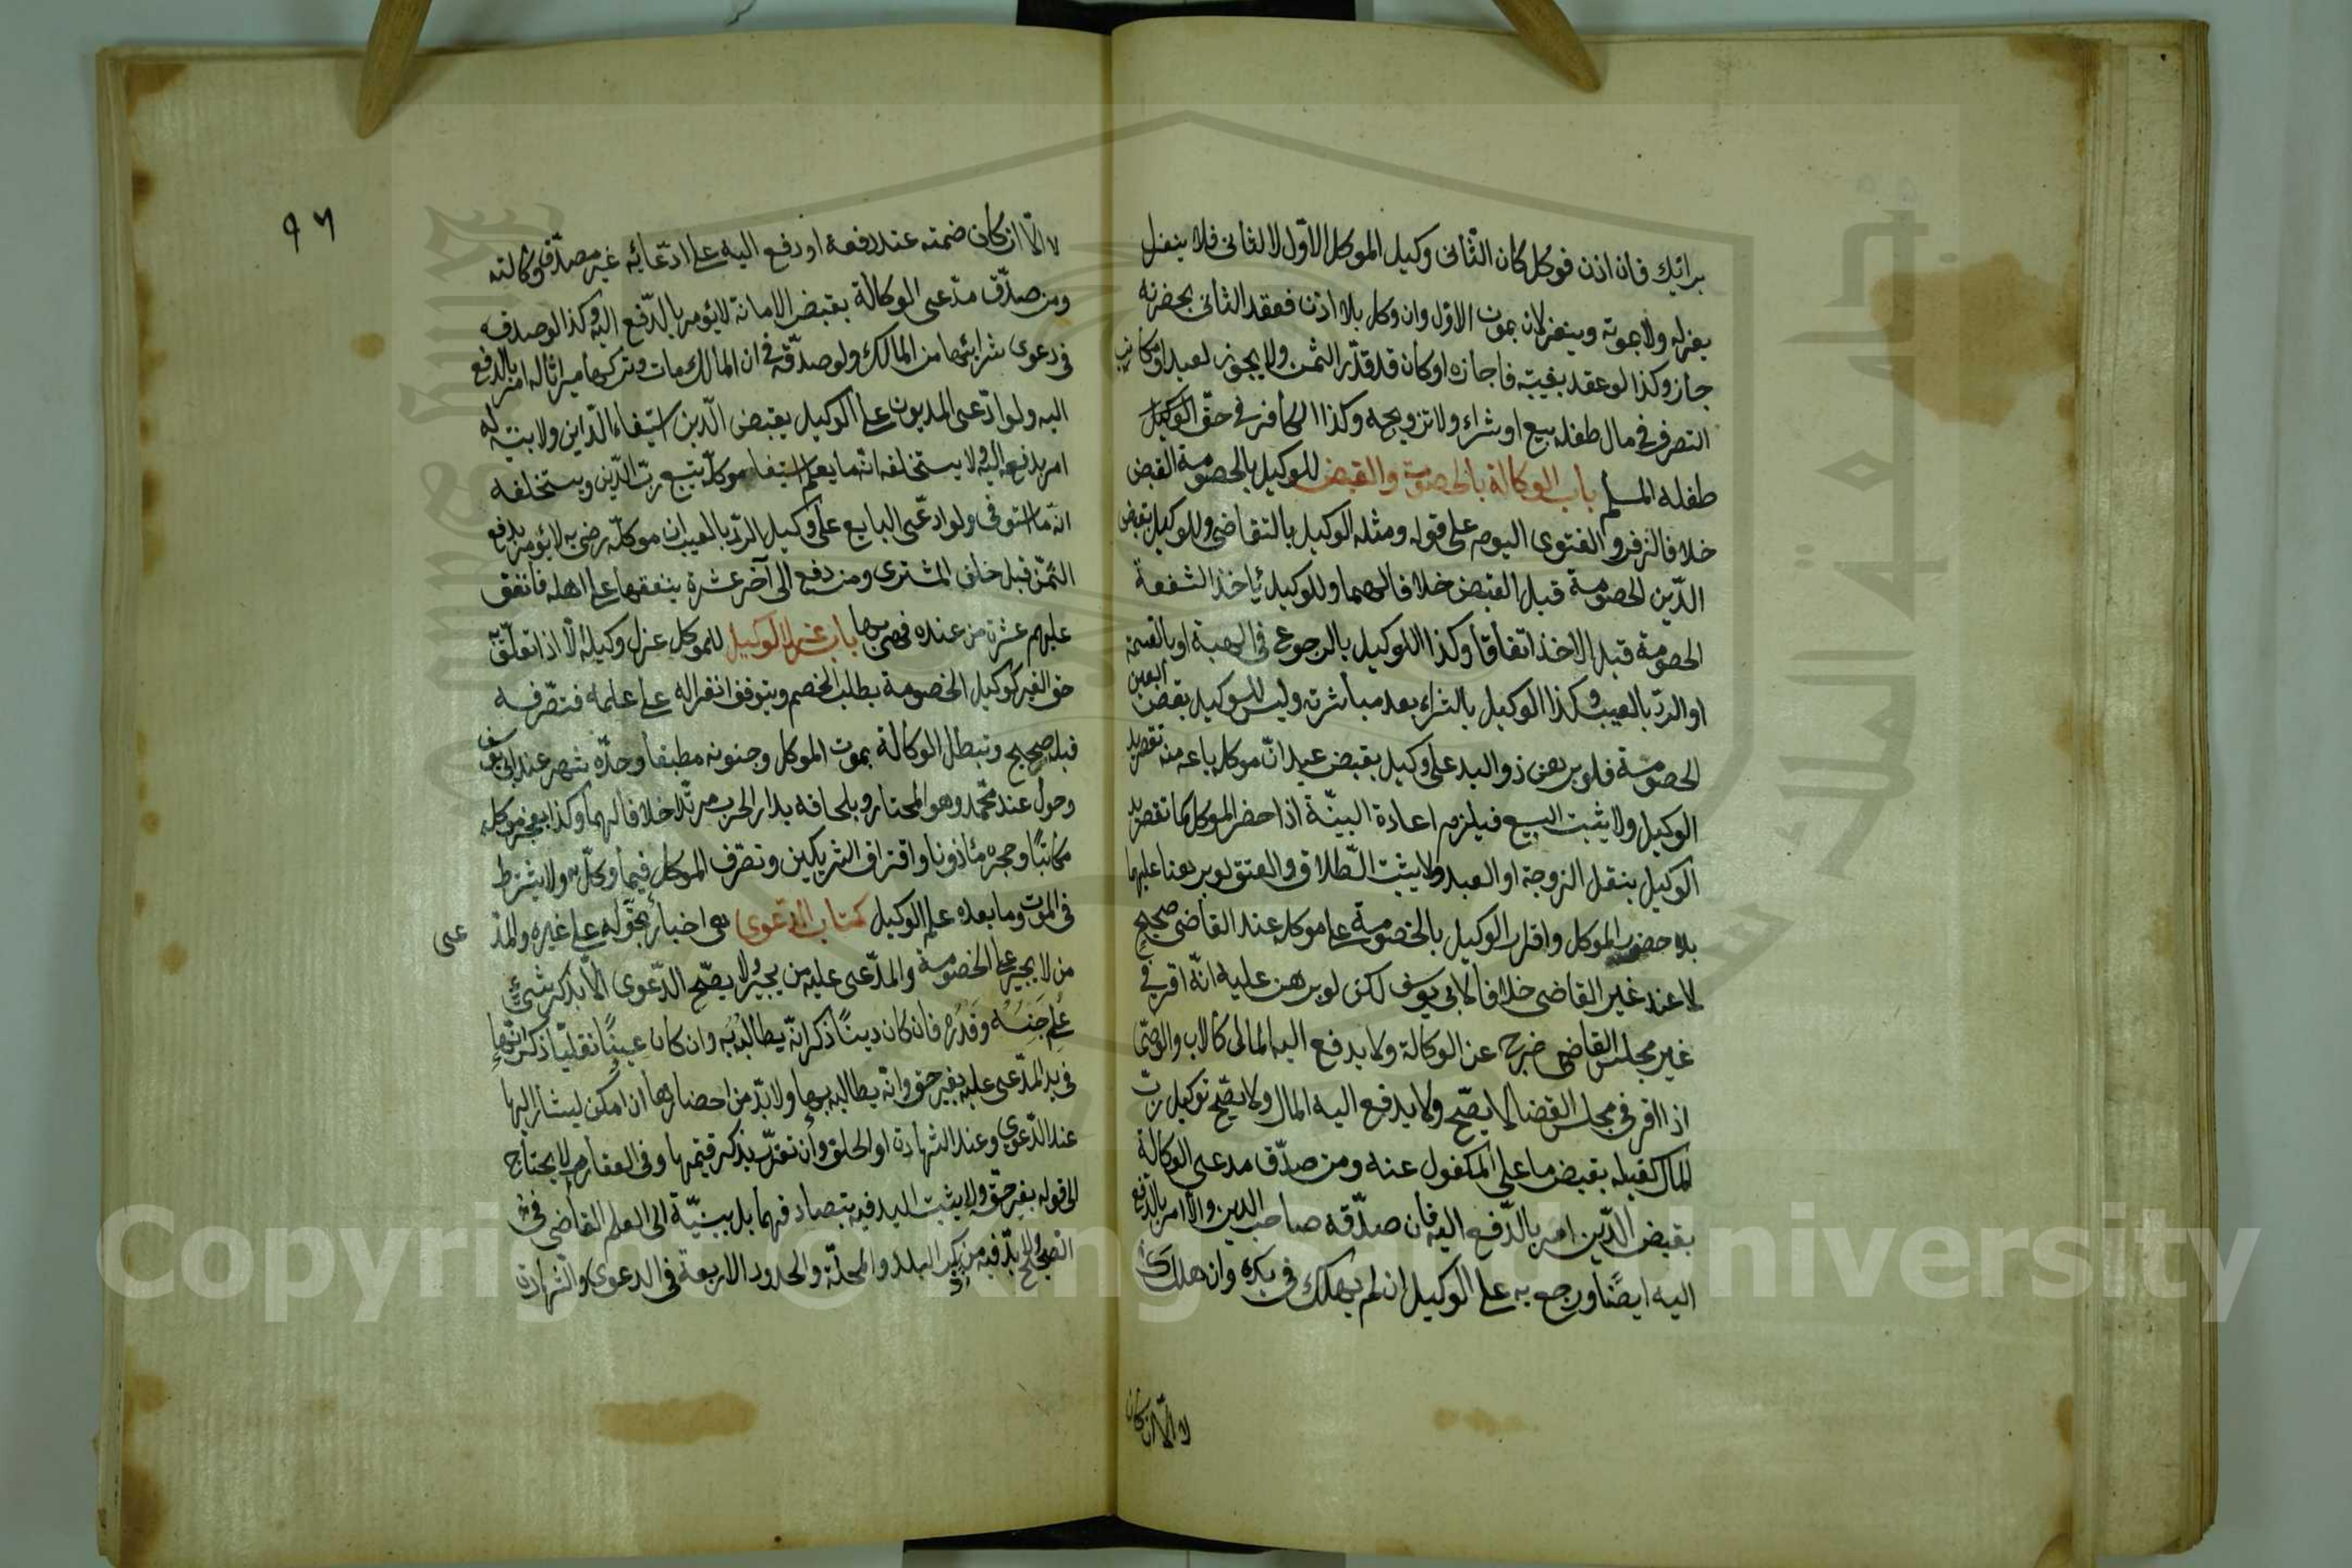 برائيك فان اذن فوكل كان الثانى وكيل الموكل الاول لا لثانى فلا ينعزل
بعزله ولا بموته وينعزلان بموت الاول وان وكل بلا اذن فعقد الثانى بحضرته
جاز وكذا لو عقد بغيبته فاجازه او كان قد قدّر الثمن ولا يجوز لعبد او مكاتب
التصرف فى مال طفله ببيع او شراء ولا تزويجه وكذا الكافر فى حقّ
طفله المسلم باب الوكالة بالخصومة والقبض للوكيل بالخصومة القبض
خلافا لزفر والفتوى اليوم على قوله ومثله الوكيل بالتقاضى وللوكيل بقبض
الدّين الخصومة قبل القبض خلافا لهما وللوكيل باخذ الشفعة
الخصومة قبل الاخذ اتفاقا وكذا اللوكيل بالرجوع فى الهبة او بالقسمة
او الردّ بالعيب وكذا الوكيل بالشراء بعد مباشرته وليس للوكيل بقبض العين
الخصومة فلو برهن ذو اليد على وكيل بقبض عبد انّ موكله باعه منه تقصر يد
الوكيل ولا يثبت البيع فيلزم اعادة البيّنة اذا حضر الموكل كما تقصر يد
الوكيل بنقل الزوجة او العبد ولا يثبت الطّلاق والعتق لو برهنا عليهما
بلا حضور الموكل واقرار الوكيل بالخصومة على موكله عند القاضى صحيح
لا عند غير القاضى خلافا لابى يوسف لكن لو برهن عليه انّه اقرّ فى
غير مجلس القاضى خرج عن الوكالة ولا يدفع اليه المال كالاب والوصىّ
اذا اقر فى مجلس القضا لا يصّح ولا يدفع اليه المال ولا يصّح توكيل ربّ
المال كفيله بقبض ما على المكفول عنه ومن صدّق مدعى الوكالة
بقبض الدّين امر بالدّفع اليه فان صدّقه صاحب الدين والا امر بالدّفع
اليه ايضًا ورجع به على الوكيل ان لم يهلك فى يده وان هلك
لا الّا ان كان
٩٦
لا الّا ان كان ضمنه عند دفعه او دفع اليه على ادّعائه غير مصدّق وكالته
ومن صدّق مدّعى الوكالة بقبض الامانة لا يؤمر بالدّفع اليه وكذا لو صدقه
فى دعوى شرائها من المالك ولو صدّقه فى ان المالك مات وتركها ميراثا له امر بالدّفع
اليه ولو ادّعى المديون على الوكيل بقبض الدّين استيفاء الدّاين ولا بينة له
امر بدفعه اليه ولا يستحلفه انّه ما يعلم استيفاء موكله بل يتبع ربّ الدّين ويستحلفه
انّه ما استوفى ولو ادّعى البايع على وكيل الردّ بالعيب ان موكلّه رضى به لا يؤمر بدفع
الثّمن قبل حلف المشترى ومن دفع الى آخر عشرة ينفقها على اهله فانفق
عليهم عشرة من عنده فهى بها باب عزل الوكيل للموكل عزل وكيله الّا اذا تعلّق به
حق الغير كوكيل الخصومة بطلب الخصم ويتوقف انعزاله على علمه فتصّرفه
قبله صحيح وتبطل الوكالة بموت الموكل وجنونه مطبقا وحدّه شهر عند ابى يوسف
وحول عند محمّد وهو المختار وبلحاقه بدار الحرب مرتدّا خلافا لهما وكذا بعجز موكله
مكاتبًا وحجره مأذونا وافتراق الشريكين وتصّرف الموكل فيما وكّل به ولا يشترط
فى الموت وما بعده علم الوكيل كتاب الدّعوى هى اخبار بحّق له على غيره والمدّ عى
من لا يجبر على الخصومة والمدّعى عليه من يجبر ولا يصّح الدّعوى الّا بذكر شىء
عُلِم جنسُه وقَدْرُه فان كان دينًا ذكر انّه يطالبه به وان كان عينًا نقليّا ذكر انّها
فى يد المدّعى عليه بغير حق وانّه يطالبه بها ولا بدّ من احضارها ان امكن ليشار اليها
عند الدّعوى وعند الشهادة او الحلف وان تعذّر يذكر قيمتها وفى العقار لا يحتاج
الى قوله بغير حّق ولا يثبت اليد فيه بتصادقهما بل ببينّة الى العلم القاضى فى
الصحيح ولا بدّ فيه من ذكر البلد والمحلّة والحدود الاربعة فى الدعوى والشهادة
Copyright © King Saud University